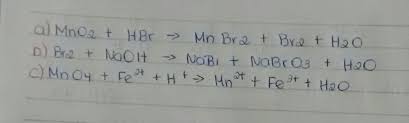 a) MnO2 + HBr → MnBr2 + Br2 + H2O
b) Br2 + NaOH → NaBr + NaBrO3 + H2O
c) MnO4 + Fe²⁺ + H⁺ → Mn²⁺ + Fe³⁺ + H2O